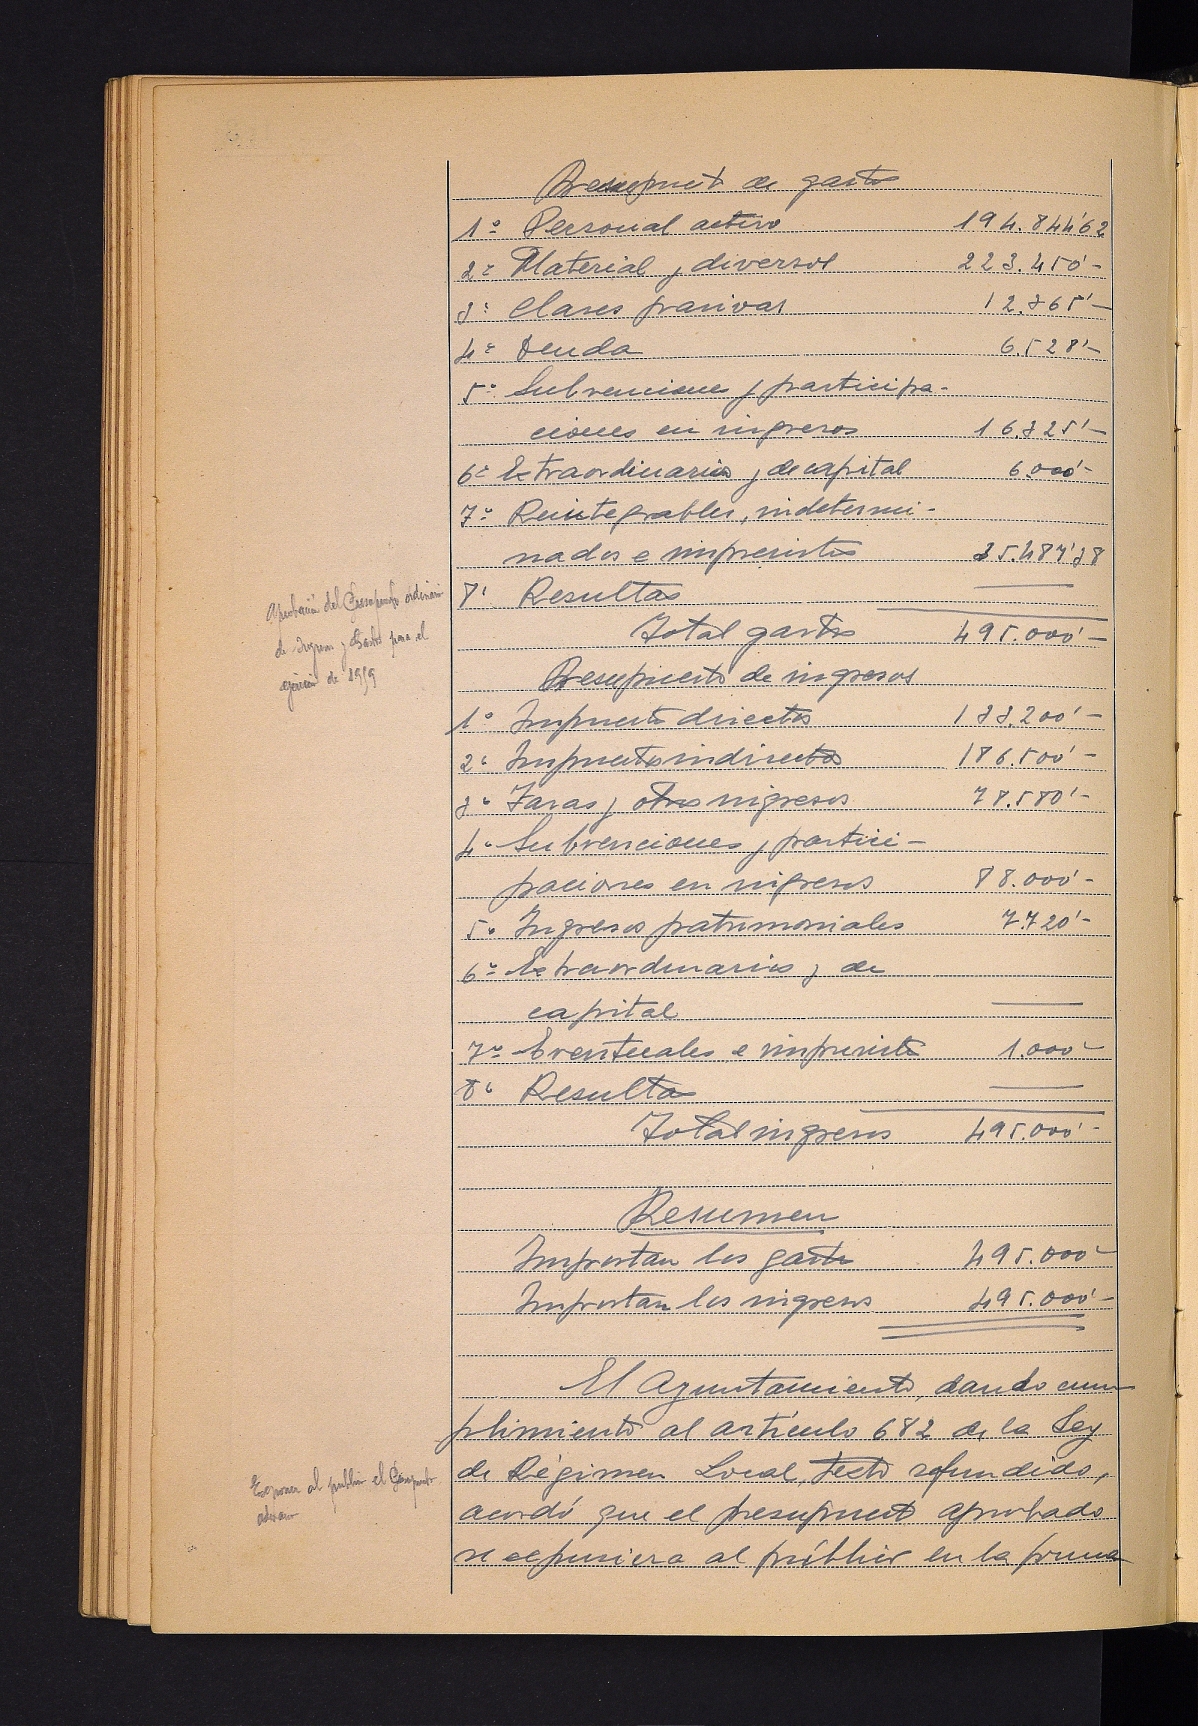 Presupuest de gastos
1º Personal activo 194.844'62
2º Material y diversos 223.450'-
3º Clases pasivas 12.365'-
4º Deuda 6.528'-
5º Subvenciones y participa-
ciones en ingresos 16.325'-
6º Extraordinarios y de capital 6.000'-
7º Reintegrables, indetermi-
nados e imprevistos 35.487'38
8º Resultas ——
Total gastos 495.000'-
Presupuesto de ingresos
1º Impuestos directos 133.200'-
2º Impuestos indirectos 186.500'-
3º Tasas y otros ingresos 78.580'-
4º Subvenciones y partici-
paciones en ingresos 88.000'-
5º Ingresos patrimoniales 7.720'-
6º Extraordinarios y de
capital ——
7º Eventuales e imprevistos 1.000'-
8º Resultas ——
Total ingresos 495.000'-
Resumen
Importan los gastos 495.000'-
Importan los ingresos 495.000'-
Aprobación del Presupuesto ordinario
de Ingresos y Gastos para el
ejercicio de 1959
El Ayuntamiento, dando cum
plimiento al artículo 682 de la Ley
de Régimen Local, Texto refundido,
acordó que el presupuesto aprobado
se expusiera al público en la forma
Exponer al público el Presupuesto